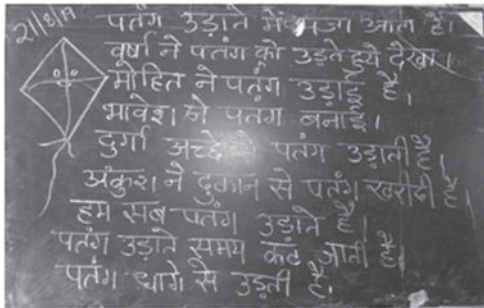 21/8/19
पतंग उड़ाने में मजा आता है।
वर्षा ने पतंग को उड़ते हुये देखा।
मोहित ने पतंग उड़ाई है।
भावेश ने पतंग बनाई।
दुर्गा अच्छे से पतंग उड़ाती है
अंकुश ने दुकान से पतंग खरीदी है।
हम सब पतंग उड़ाते है।
पतंग उड़ाते समय कट जाती है।
पतंग धागे से उड़ती है।